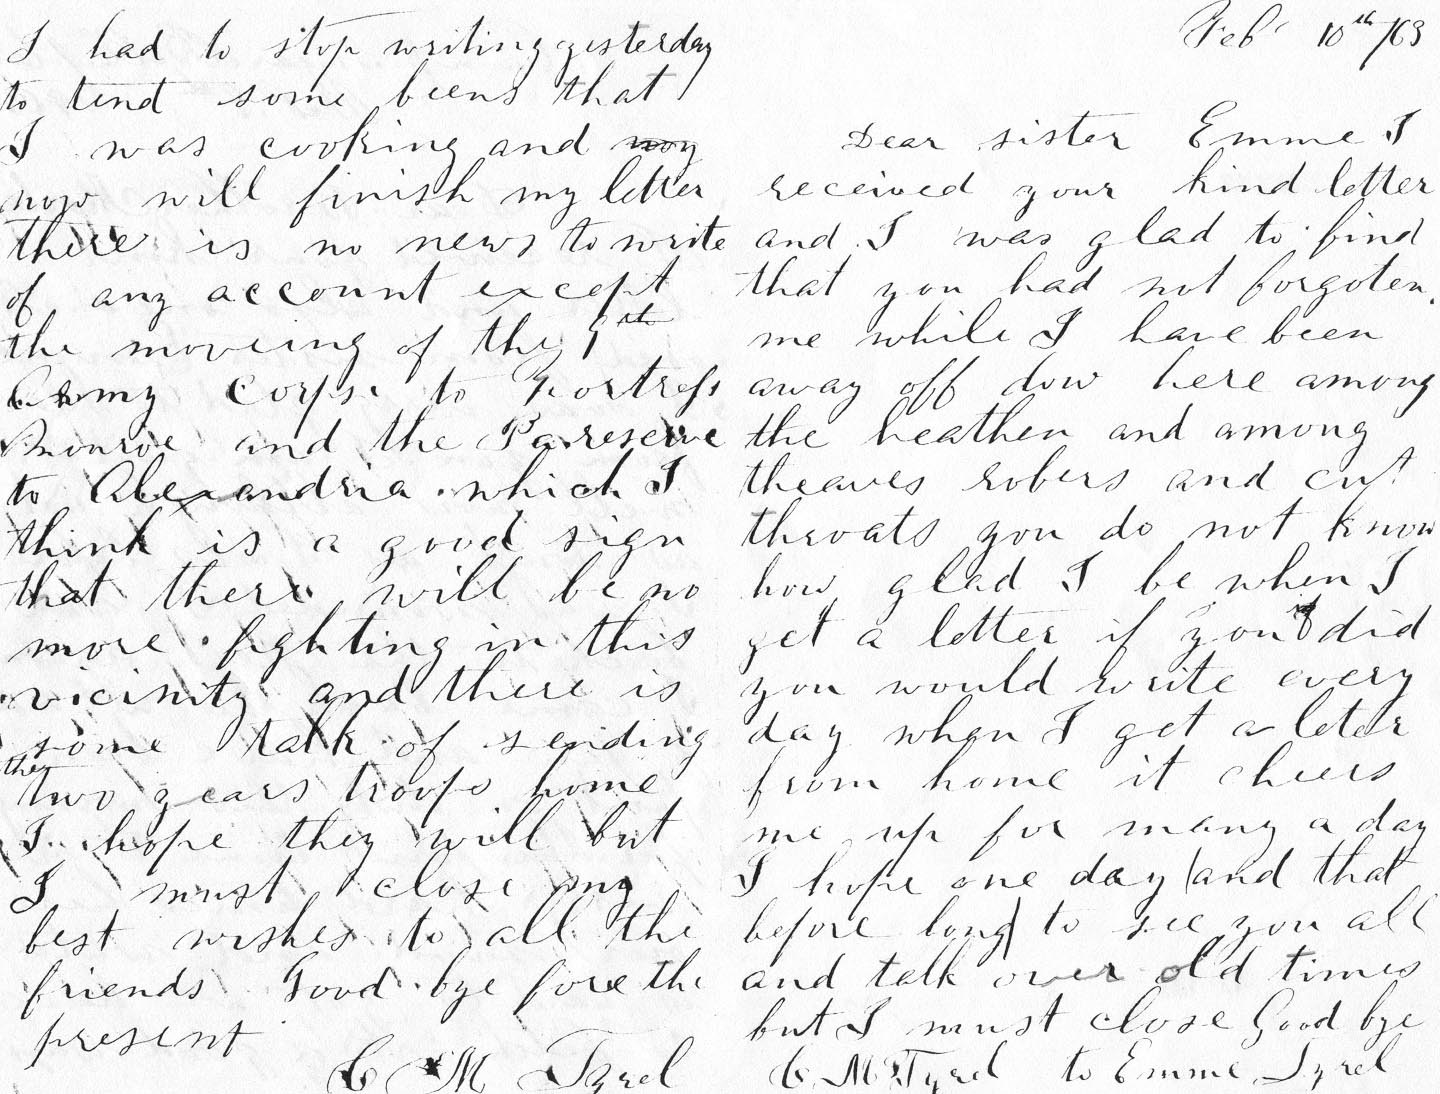 I had to stop writing yesterday
to tend some beens that
I was cooking and
now will finish my letter
there is no news to write
of any account except
the moveing of the 9th
Army Corps to Fortress
Monroe and the Pa reserve
to Alexandria which I
think is a good sign
that there will be no
more fighting in this
vicinity and there is
some talk of sending
the two years troops home
I hope they will but
I must close my
best wishes to all the
friends Good bye fore the
present
C M Tyrel
Feb 10th /63
Dear sister Emme I
received your kind letter
and I was glad to find
that you had not forgoten
me while I have been
away off dow here among
the heathen and among
theaves robers and cut
throats you do not know
how glad I be when I
get a letter if you did
you would write every
day when I get a leter
from home it cheers
me up for many a day
I hope one day (and that
before long) to see you all
and talk over old times
but I must close Good bye
C M Tyrel to Emme Tyrel